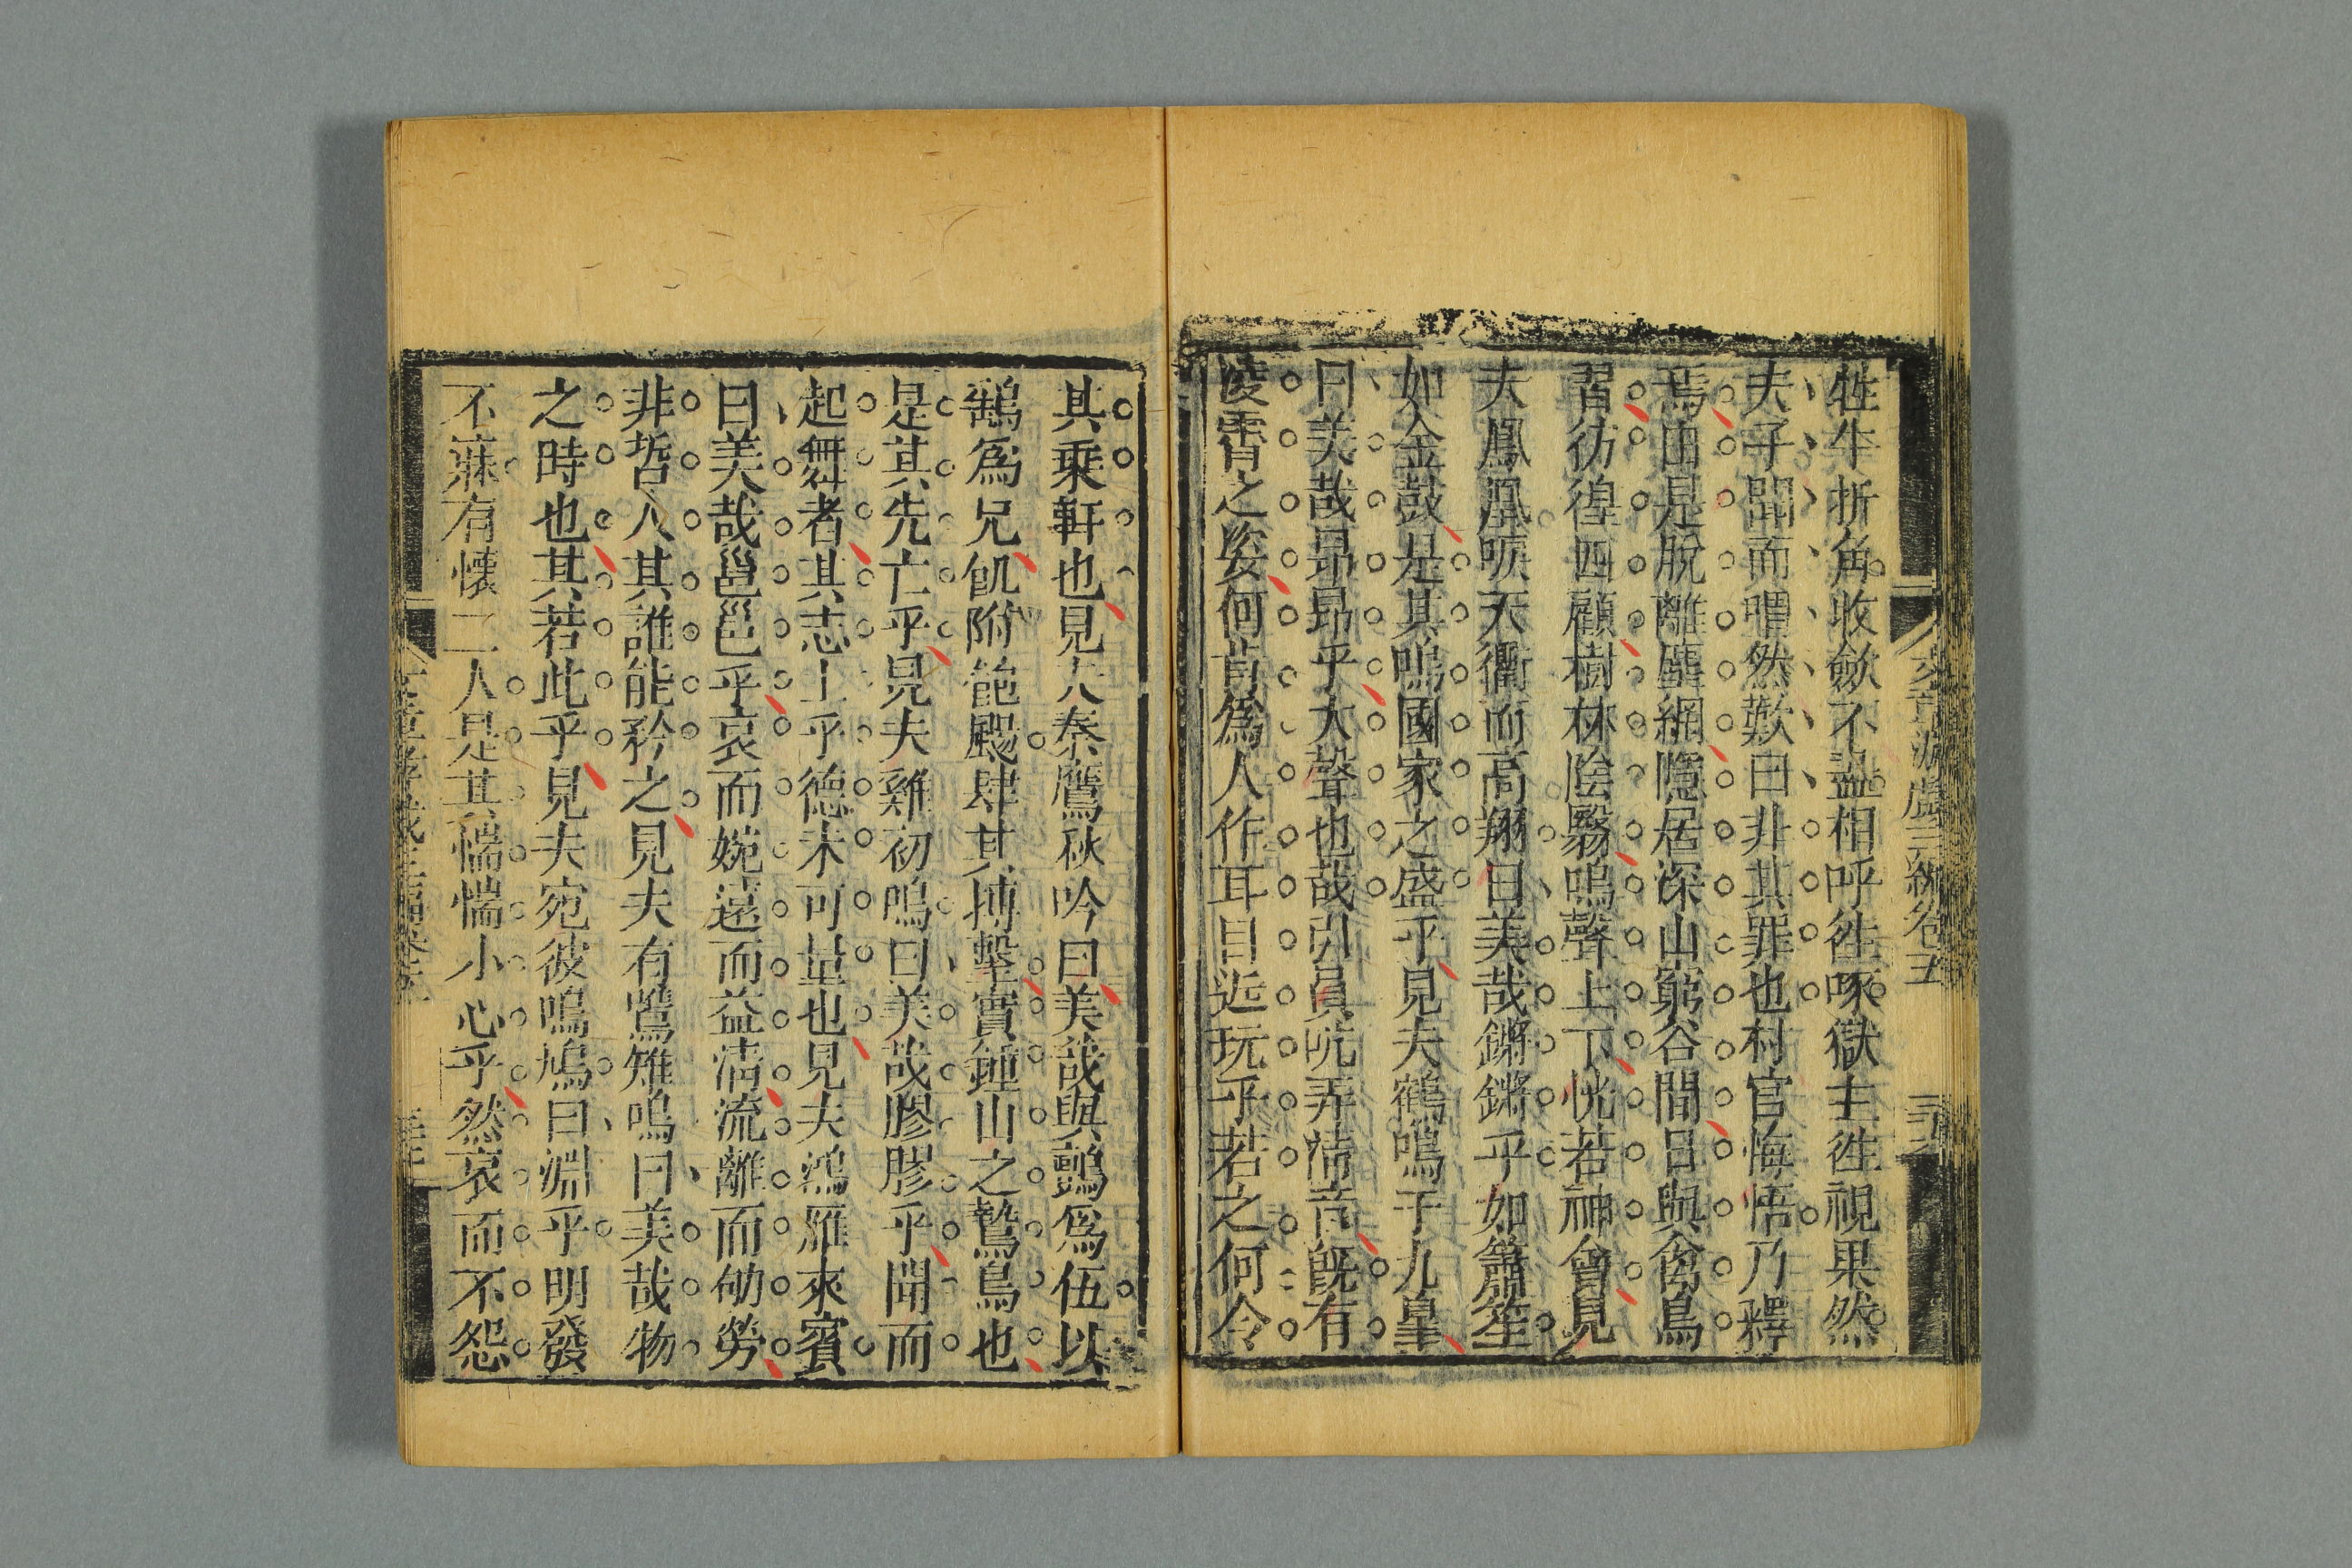 牲牛折角收歛不盡相呼徃啄獄主徃視果然
夫子聞而喟然歎曰非其罪也村官悔悟乃釋
焉由是脫離塵網隱居深山窮谷間日與禽鳥
習彷徨四顧樹林陰翳鳴聲上下恍若神會見
夫鳳凰唳天衢而高翔曰美哉鏘鏘乎如簫笙
如金鼓是其鳴國家之盛乎見夫鶴鳴于九皐
曰美哉昻昻乎大聲也哉引員吭弄清音旣有
凌霄之姿何肯爲人作耳目近玩乎若之何令
其乗軒也見大秦鷹秋吟曰美哉與鸇爲伍以
鷂爲兄飢附飽颺肆其搏擊實鍾山之鷙鳥也
是其先亡乎見夫雞初鳴曰美哉膠膠乎聞而
起舞者其志士乎德未可量也見夫鴻雁來賓
曰美哉邕邕乎哀而婉遠而益清流離而劬勞
非哲人其誰能矜之見夫有鷕雉鳴曰美哉物
之時也其若此乎見夫宛彼鳴鳩曰淵乎明發
不寐有懷二人是其惴惴小心乎然哀而不怨